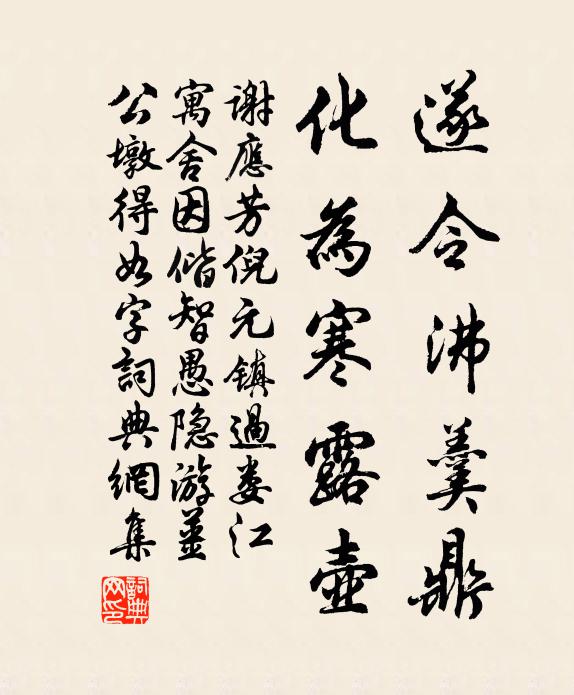 遂令沸羹鼎
化為寒露壺
謝應芳倪元鎮過婁江
寓舍因偕智愚隐游薑
公墩得如字詞典網集
詞典網印